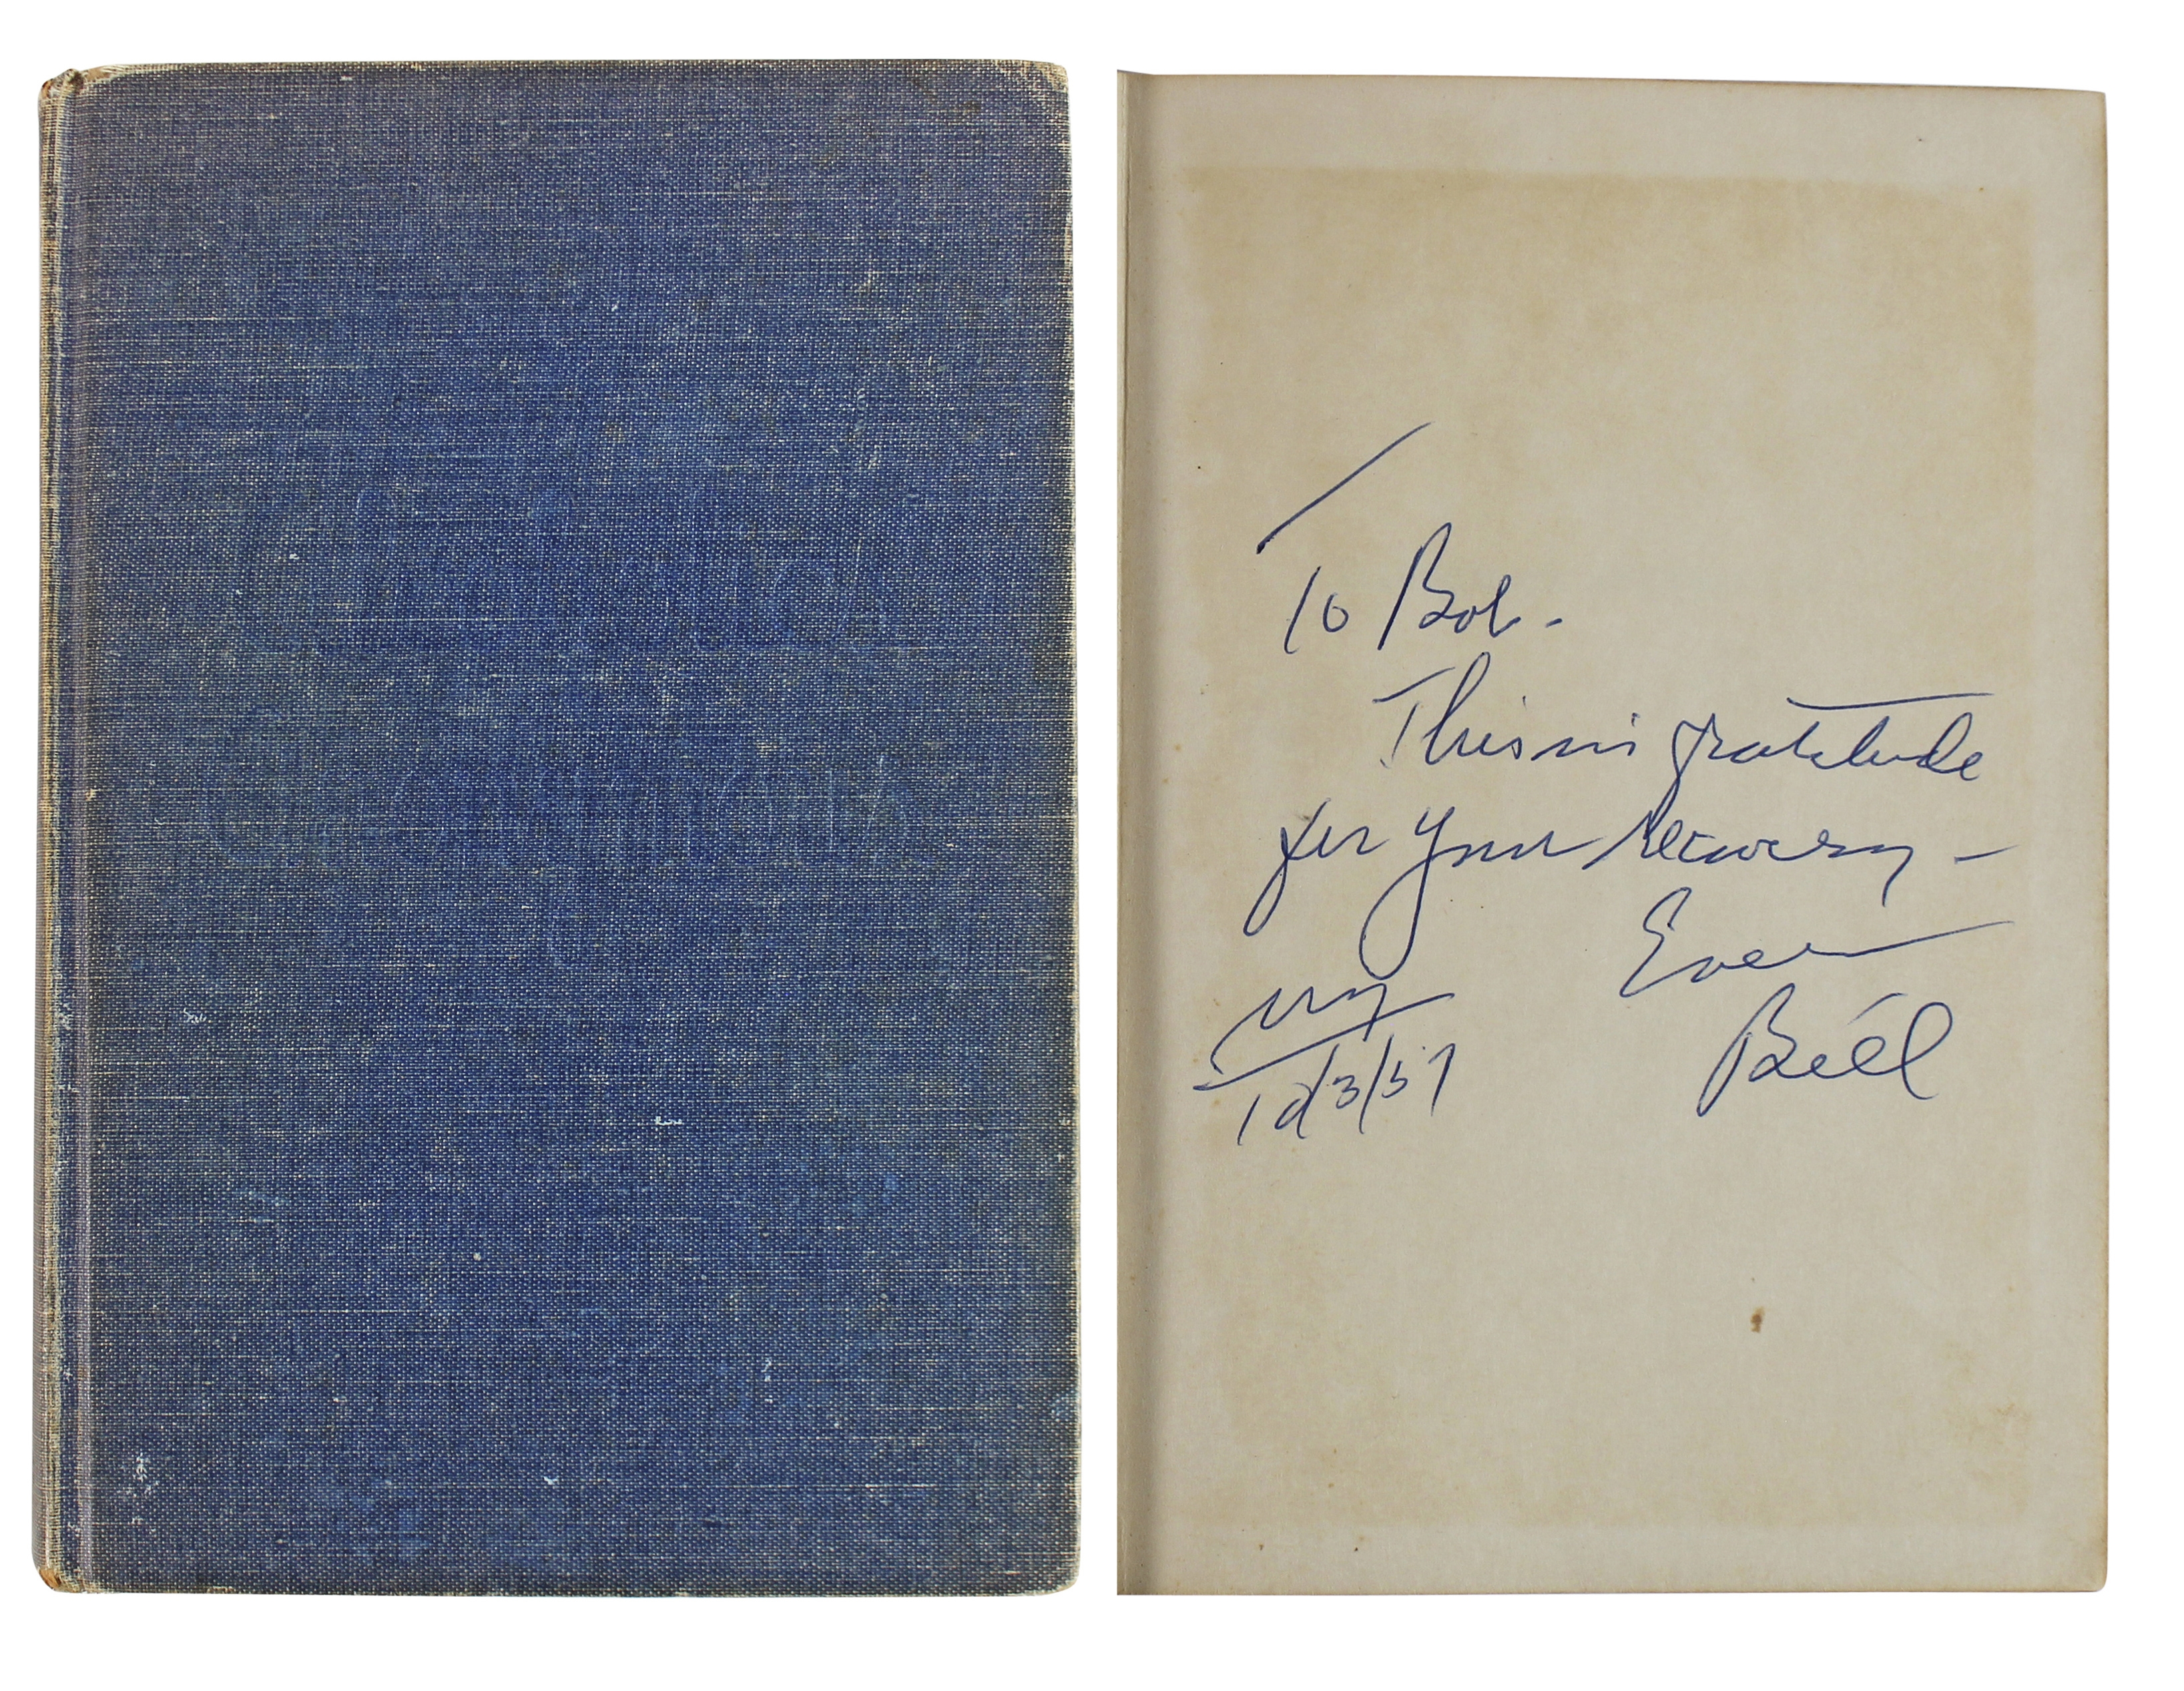 Alcoholics
Anonymous
To Bob -
This in gratitude
for your recovery -
Ever
Bill
NY
12/3/57